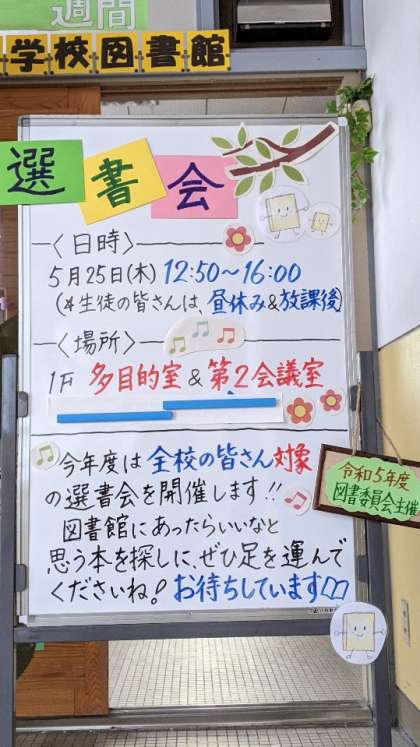 週間
学校図書館
選書会
〈日時〉
5月25日(木) 12:50〜16:00
(生徒の皆さんは、昼休み&放課後)
〈場所〉
1F 多目的室 & 第2会議室
今年度は全校の皆さん対象
の選書会を開催します!!
図書館にあったらいいなと
思う本を探しに、ぜひ足を運んで
くださいね! お待ちしています
令和5年度
図書委員会主催